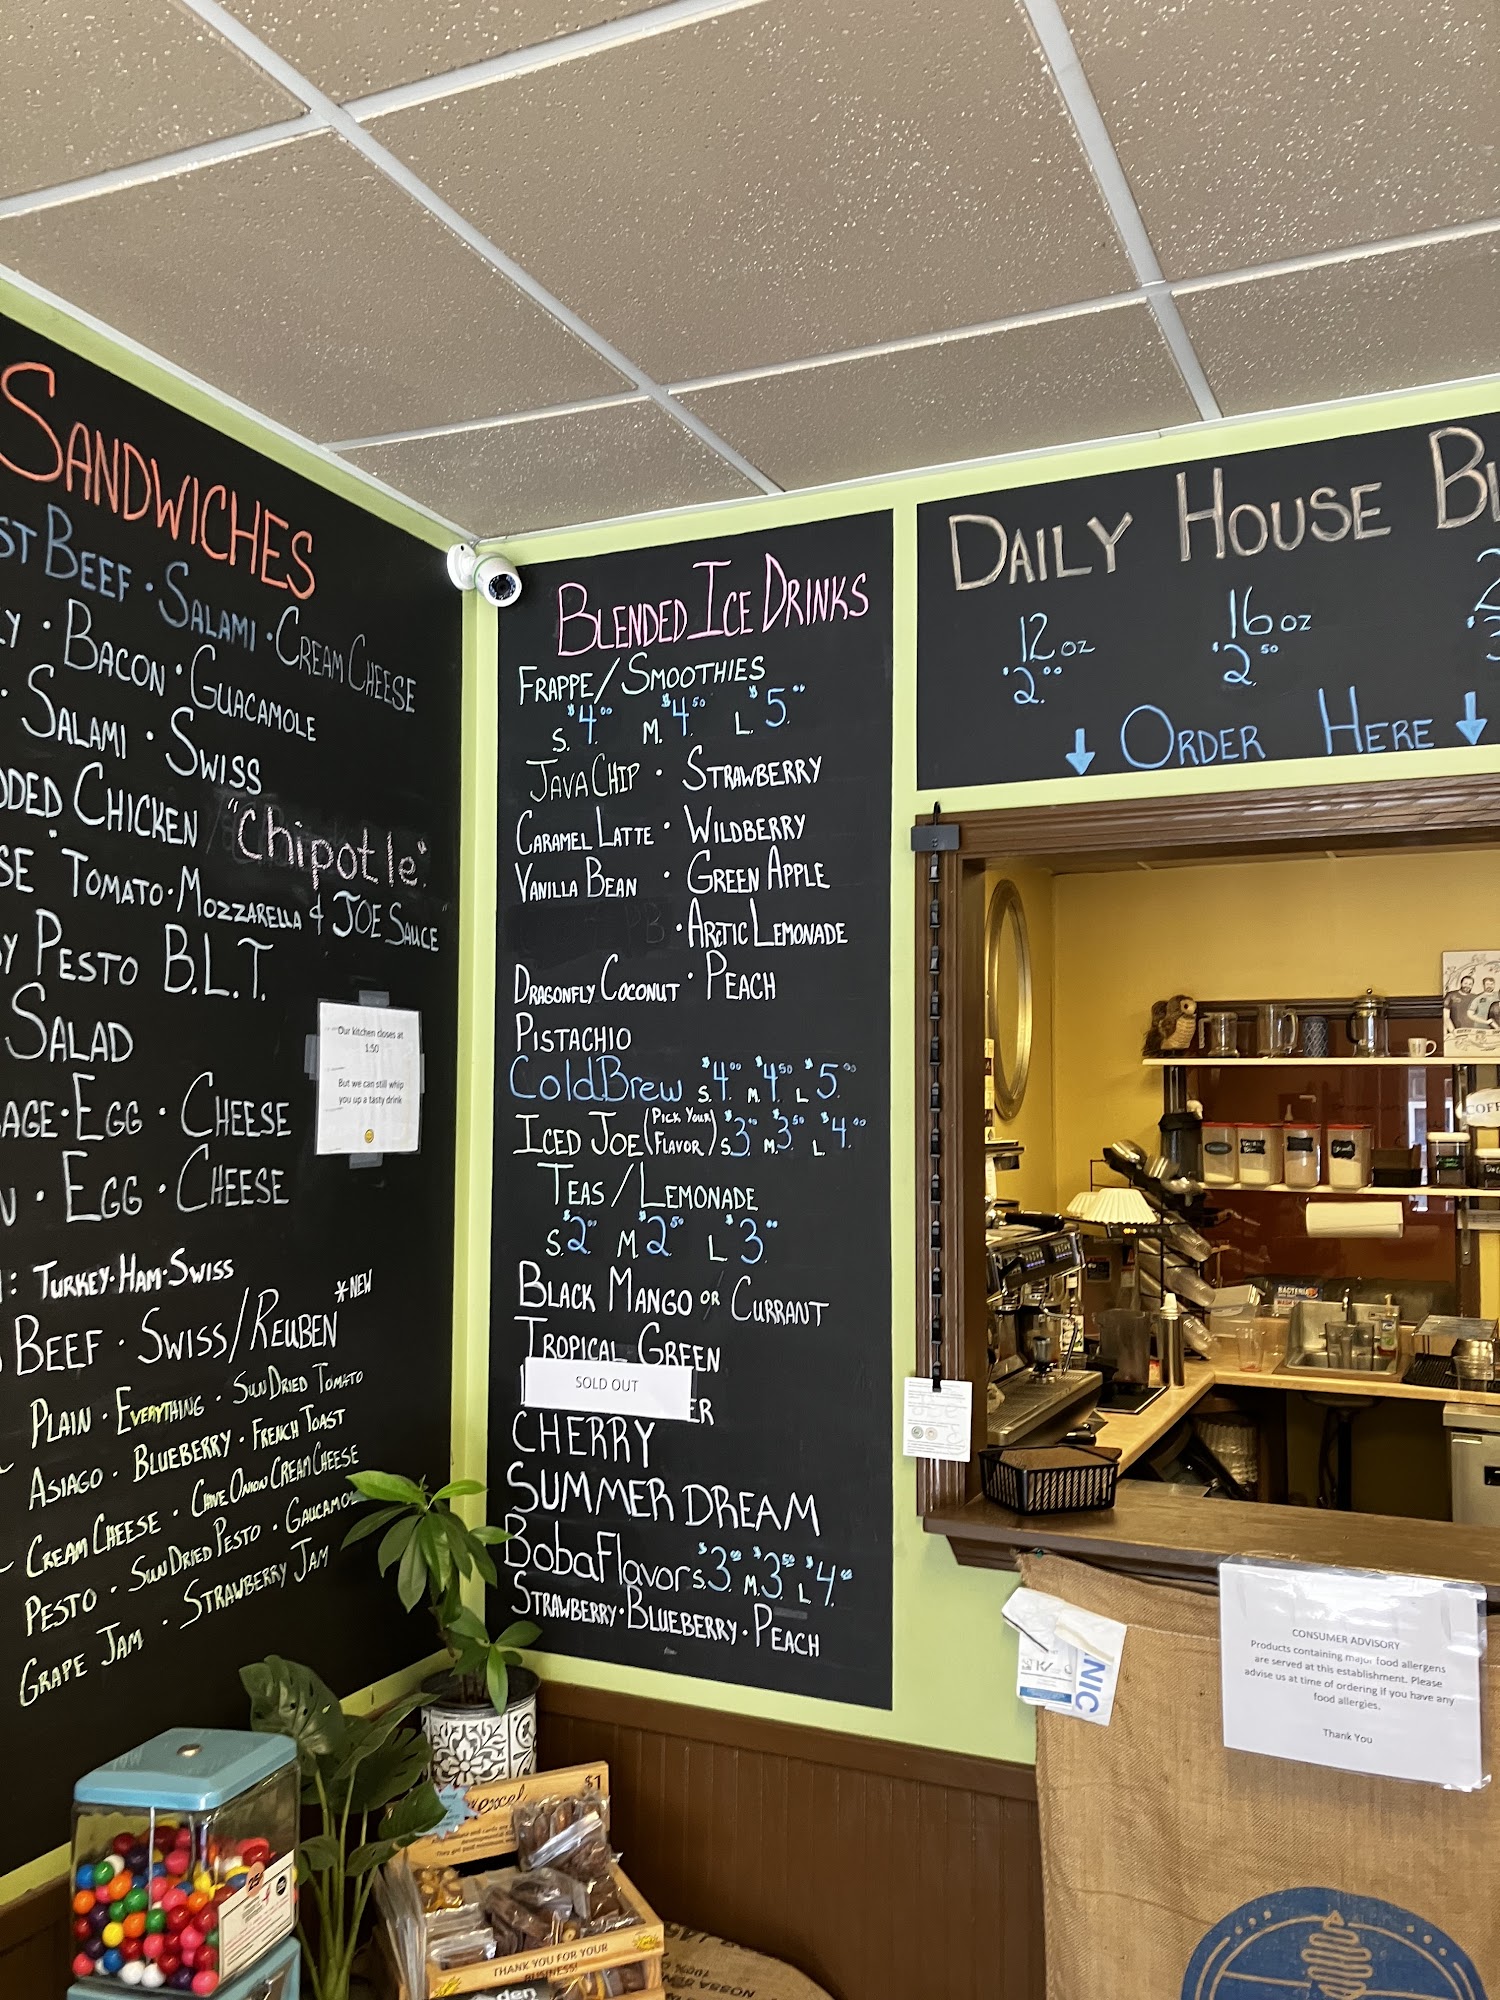 SANDWICHES
BEEF · SALAMI · CREAM CHEESE
· BACON · GUACAMOLE
· SALAMI · SWISS
CHICKEN "Chipotle"
TOMATO · MOZZARELLA & JOE SAUCE
PESTO B.L.T.
SALAD
· EGG · CHEESE
· EGG · CHEESE
: TURKEY · HAM · SWISS
BEEF · SWISS/REUBEN *NEW
PLAIN · EVERYTHING · SUN DRIED TOMATO
ASIAGO · BLUEBERRY · FRENCH TOAST
CREAM CHEESE · CHIVE ONION CREAM CHEESE
PESTO · SUN DRIED PESTO · GAUCAMOL
GRAPE JAM · STRAWBERRY JAM
Our kitchen closes at
1:50
But we can still whip
you up a tasty drink
BLENDED ICE DRINKS
FRAPPE/SMOOTHIES
S. $4.00 M. $4.50 L. $5.00
JAVA CHIP · STRAWBERRY
CARAMEL LATTE · WILDBERRY
VANILLA BEAN · GREEN APPLE
· ARCTIC LEMONADE
DRAGONFLY COCONUT · PEACH
PISTACHIO
Cold Brew S. $4.00 M. $4.50 L $5.00
ICED JOE (PICK YOUR FLAVOR) S $3.00 M. $3.50 L $4.00
TEAS / LEMONADE
S. $2.00 M. $2.50 L $3.00
BLACK MANGO OR CURRANT
TROPICAL GREEN
SOLD OUT
ER
CHERRY
SUMMER DREAM
Boba Flavor S. $3.00 M. $3.50 L $4.00
STRAWBERRY · BLUEBERRY · PEACH
DAILY HOUSE BL
12 oz
16 oz
$2.00
$2.50
↓ ORDER HERE ↓
CONSUMER ADVISORY
Products containing major food allergens
are served at this establishment. Please
advise us at time of ordering if you have any
food allergies.
Thank You
NIC
excel
$1
THANK YOU FOR YOUR
BUSINESS!
25¢